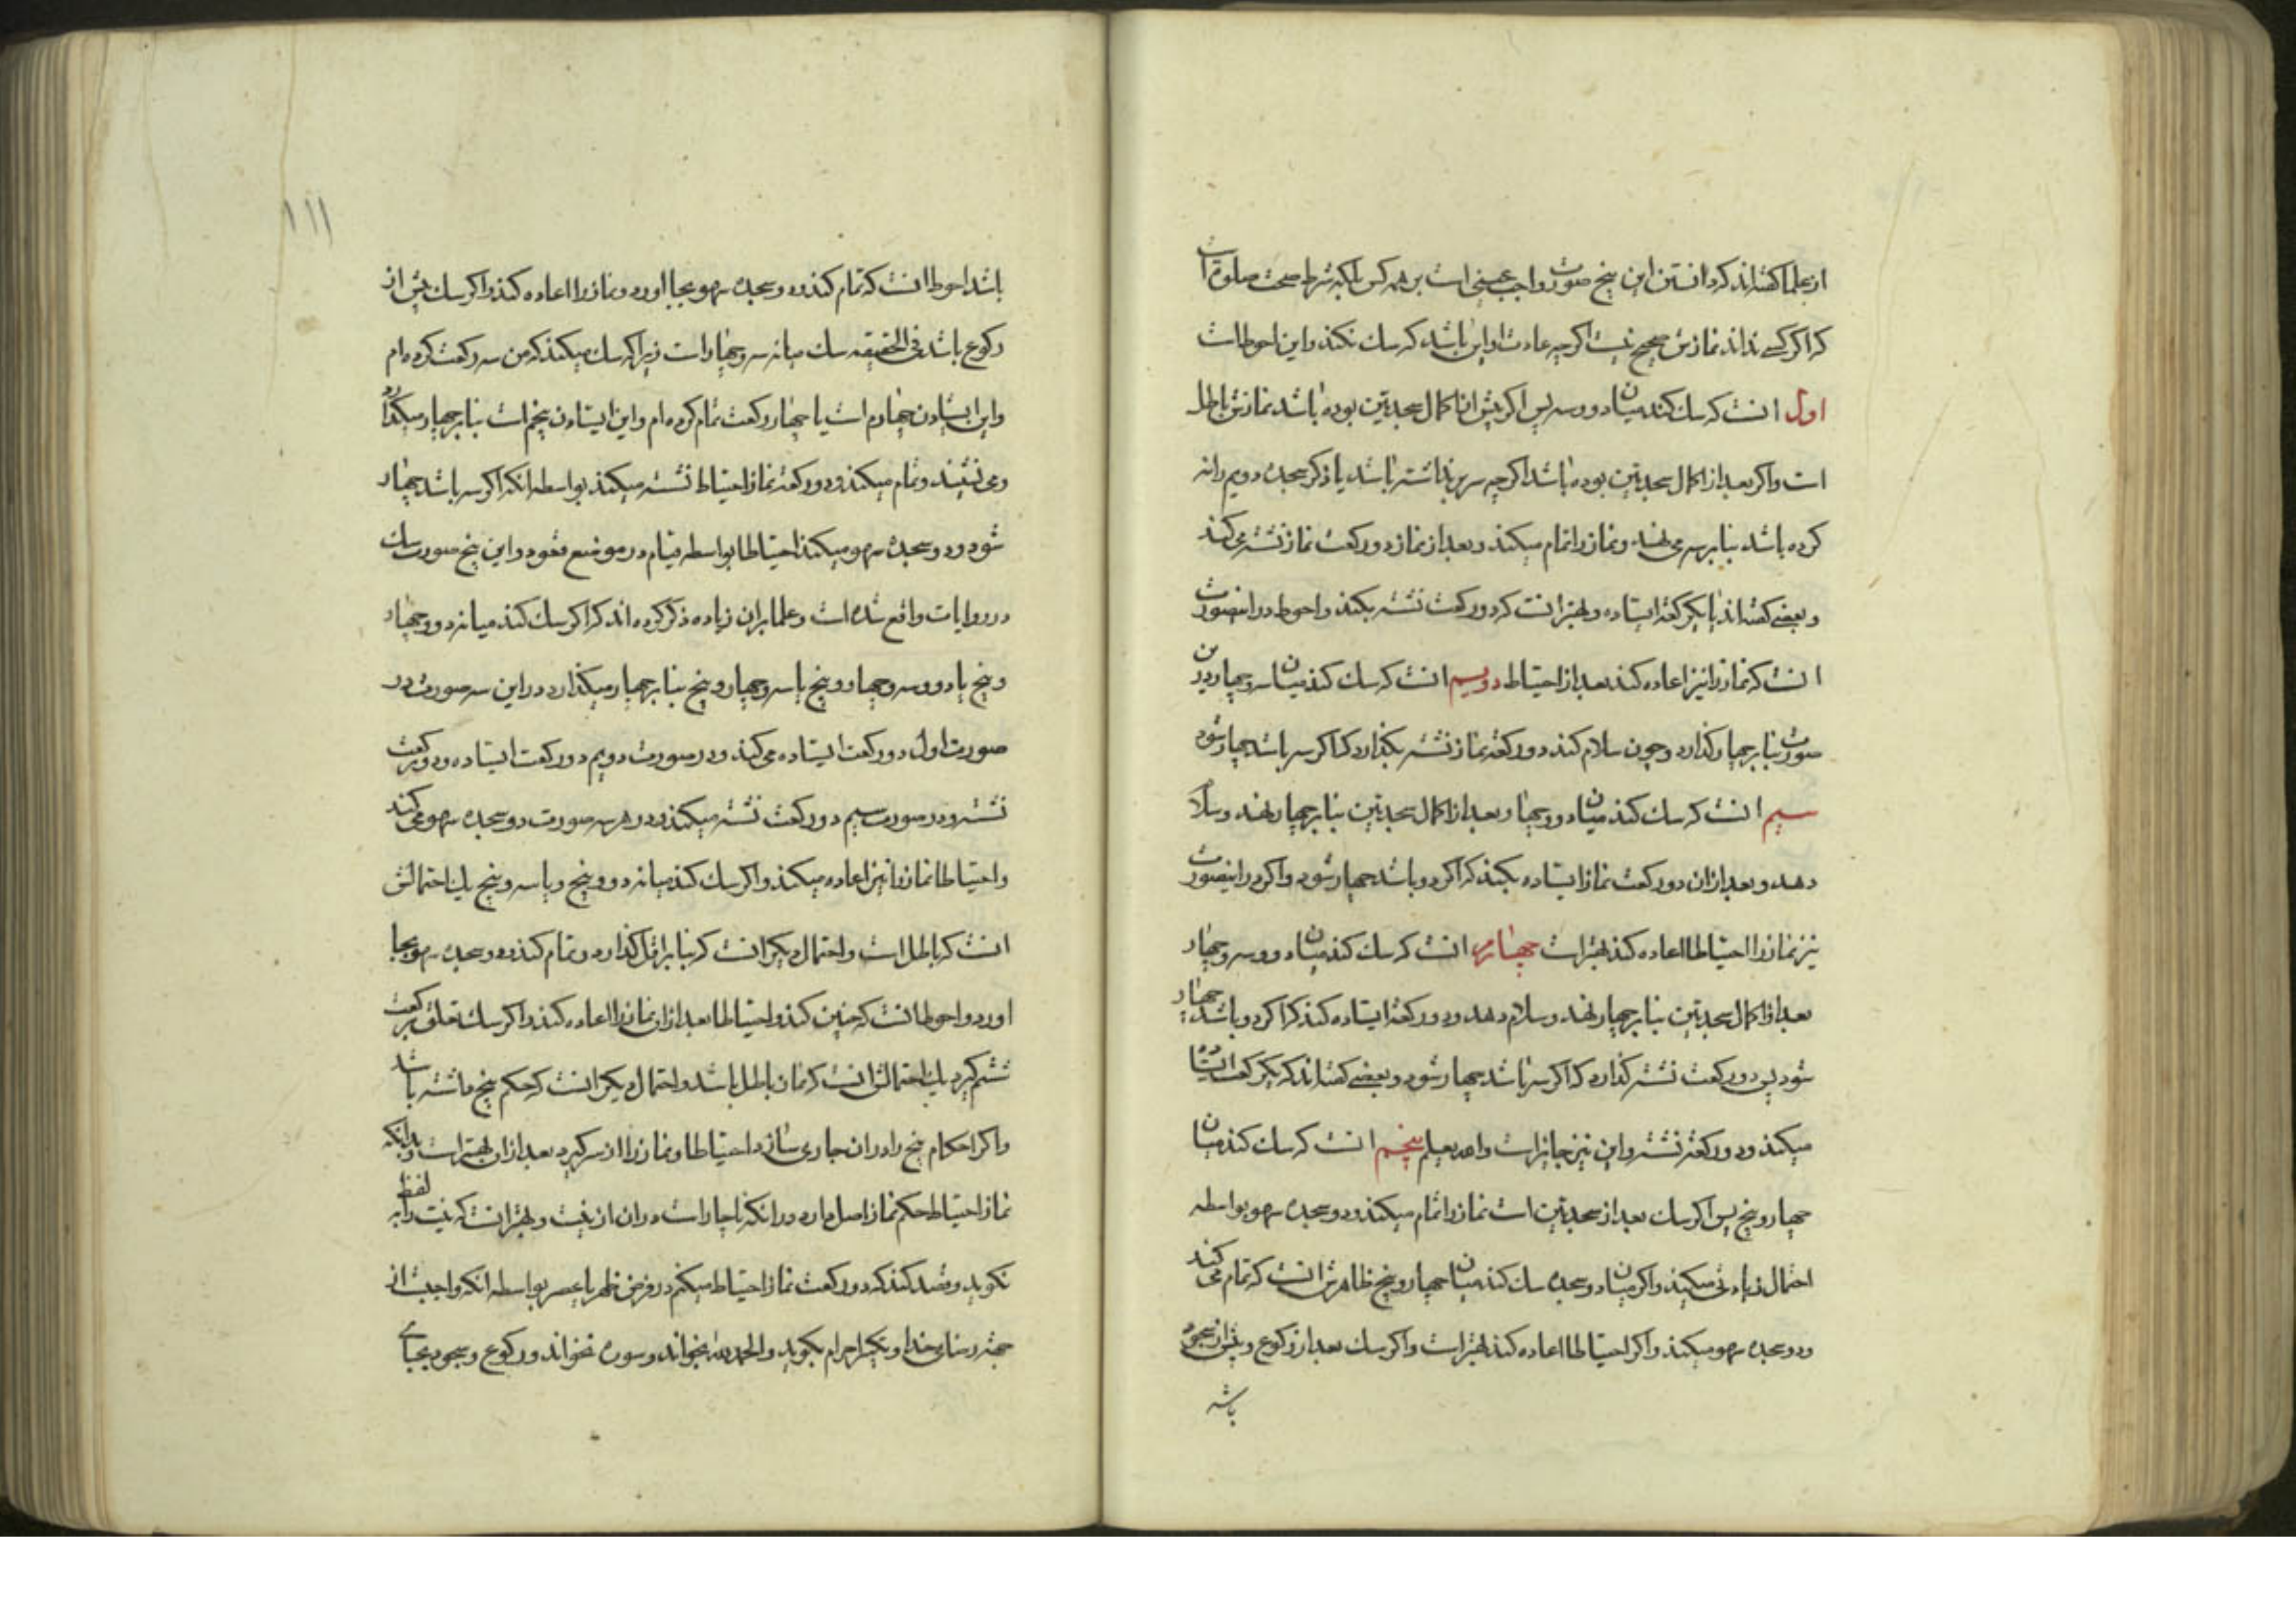 از علما گفته‌اند که دانستن این پنج صورت واجب عینی است بر همه کس بلکه شرط صحت صلوة است
که اگر کسی نداند نمازش صحیح نیست اگرچه عادت او این باشد که شک نکند و این احوط است
اول انست که شک کند میان دو و سه پس اگر پیش از اکمال سجدتین بوده باشد نمازش باطل
است و اگر بعد از اکمال سجدتین بوده باشد اگرچه سر برنداشته باشد یا ذکر سجده دویم را نه
کرده باشد بنابر سه می نهد و نماز را تمام میکند و بعد از نماز دو رکعت نماز نشسته می کند
و بعضی گفته‌اند یا یکرکعة ایستاده و بهتر انست که دو رکعت نشسته بکند و احوط در اینصورت
انست که نماز را نیز اعاده کند بعد از احتیاط دویم انست که شک کند میان سه و چهار درین
صورت بنابر چهار گذارد و چون سلام کند دو رکعة نماز نشسته بگذارد که اگر سه باشد چهار شود
سیم انست که شک کند میان دو و چهار بعد از اکمال سجدتین بنابر چهار نهد و سلام
دهد و بعد از ان دو رکعت نماز ایستاده بکند که اگر دو باشد چهار شود و اگر در اینصورت
نیز نماز را احتیاطا اعاده کند بهتر است چهارم انست که شک کند میان دو و سه و چهار
بعد از اکمال سجدتین بنابر چهار نهد و سلام دهد و دو رکعة ایستاده کند که اگر دو باشد چهار
شود پس دو رکعت نشسته گذارد که اگر سه باشد چهار شود و بعضی گفته‌اند که یکرکعت ایستاده
میکند و دو رکعة نشسته و این نیز جایز است والله یعلم پنجم انست که شک کند میان
چهار و پنج پس اگر شک بعد از سجدتین است نماز را تمام میکند و دو سجده سهو بواسطه
احتمال زیادتی میکند و اگر میان دو سجده شک کند میان چهار و پنج ظاهرش انست که تمام می کند
و دو سجده سهو میکند و اگر احتیاطا اعاده کند بهتر است و اگر شک بعد از رکوع و پیش از سجود
باشد
١١١
باشد احوط انست که تمام کند و دو سجده سهو بجا اورد و نماز را اعاده کند و اگر شک پیش از
رکوع باشد فی الحقیقه شک میانه سه و چهار است زیرا که شک میکند که من سه رکعت کرده ام
و این ایستادن چهارم است یا چهار رکعت تمام کرده ام و این ایستادن پنجم است بنابر چهار میگذارد
و می نشیند و تمام میکند و دو رکعة نماز احتیاط نشسته میکند بواسطه انکه اگر سه باشد چهار
شود و دو سجده سهو میکند احتیاطا بواسطه قیام در موضع قعود و این پنج صورت شک
در روایات واقع شده است و علما بران زیاده ذکر کرده اند که اگر شک کند میانه دو و چهار
و پنج یا دو و سه و چهار و پنج یا سه و چهار و پنج بنابر چهار میگذارد در این سه صورت در
صورت اول دو رکعت ایستاده می کند و در صورت دویم دو رکعت ایستاده و دو رکعت
نشسته و در صورت سیم دو رکعت نشسته میکند و در هر سه صورت دو سجده سهو می کند
و احتیاطا نماز را نیز اعاده میکند و اگر شک کند میانه دو و پنج و یا سه و پنج یک احتمالش
انست که باطل است و احتمال دیگر انست که بنابر اقل گذارد و تمام کند و دو سجده سهو بجا
اورد و احوط انست که چنین کند و احتیاطا بعد از ان نماز را اعاده کند و اگر شک تعلق برکعت
ششم گیرد یک احتمالش انست که نماز باطل باشد و احتمال دیگر انست که حکم پنج داشته باشد
و اگر احکام پنج را در ان جاری سازد احتیاطا و نماز را از سر گیرد بعد از ان بهتر است و بدانکه
نماز احتیاط حکم نماز اصل دارد در انکه ناچار است در ان از نیت و بهتر انست که نیت را به لفظ
نگوید و قصد کند که دو رکعت نماز احتیاط میکنم در فرض ظهر یا عصر بواسطه انکه واجبست از
جهة رضای خدا و تکبیر احرام بگوید و الحمد لله بخواند و سوره نخواند و رکوع و سجود بجای